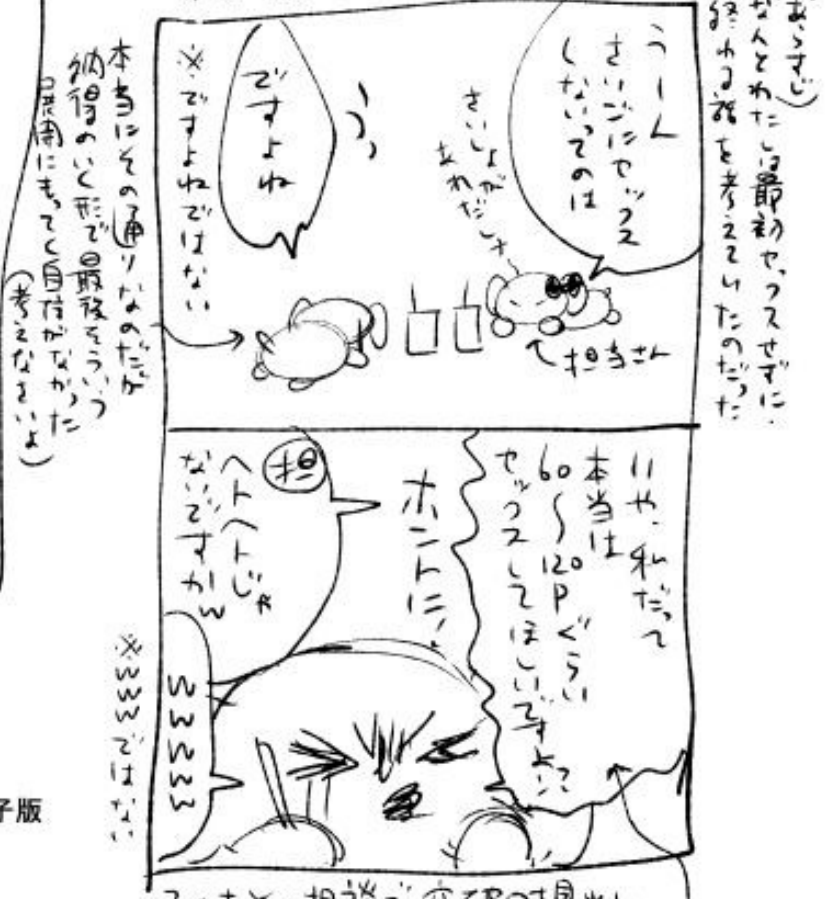 あらすじ)
なんとわたしは最初セックスせずに
終わる話を考えていたのだった
うーん
さいごにセックス
しないってのは
さいしょが
あれだしナ
←担当さん
ですよね
※ですよねではない
本当にその通りなのだが
納得のいく形で最後そういう
展開にもってく自信がなかった
(考えなさいよ)
いや、私だって
本当は
60〜120Pぐらい
セックスしてほしいですよ!?
ホントに!
担
ヘトヘトじゃ
ないですかw
wwwww
※wwwではない
子版